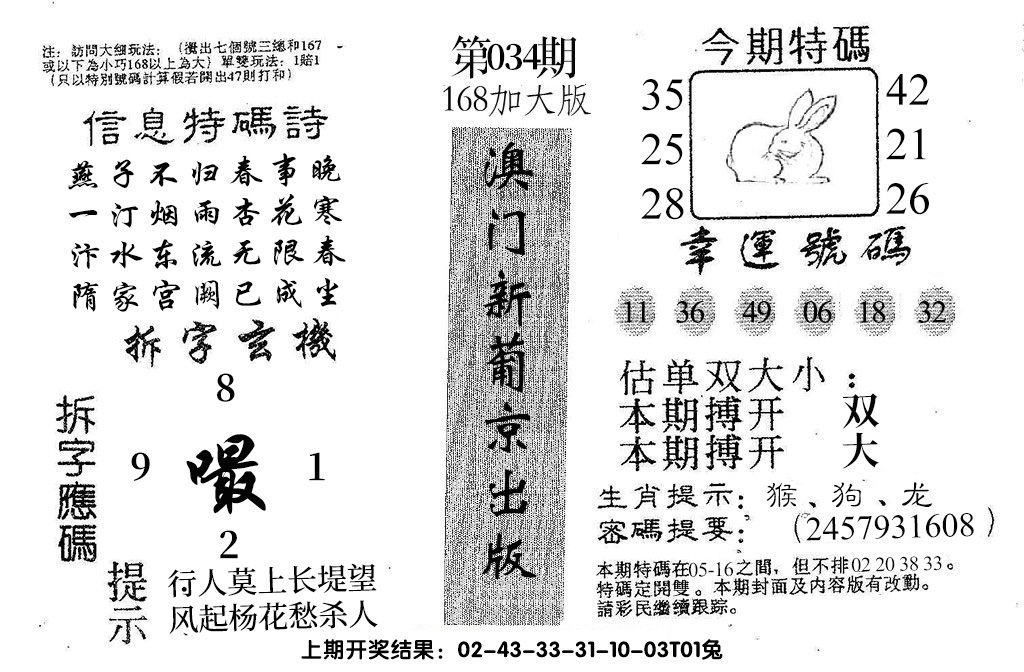 注：訪問大细玩法：（攪出七個號三總和167
或以下為小巧168以上為大）單雙玩法：1賠1
（只以特別號碼計算假若開出47則打和）
信息特碼詩
燕子不归春事晚
一汀烟雨杏花寒
汴水东流无限春
隋家宫阙已成尘
拆字玄機
8
拆字應碼
9 嘬 1
2
提示
行人莫上长堤望
风起杨花愁杀人
第034期
168加大版
澳门新葡京出版
今期特碼
35 42
25 21
28 26
幸運號碼
11 36 49 06 18 32
估单双大小：
本期搏开 双
本期搏开 大
生肖提示：猴、狗、龙
密碼提要：（2457931608）
本期特碼在05-16之間，但不排02 20 38 33。
特碼定開雙。本期封面及内容版有改動。
請彩民繼續跟踪。
上期开奖结果：02-43-33-31-10-03T01兔